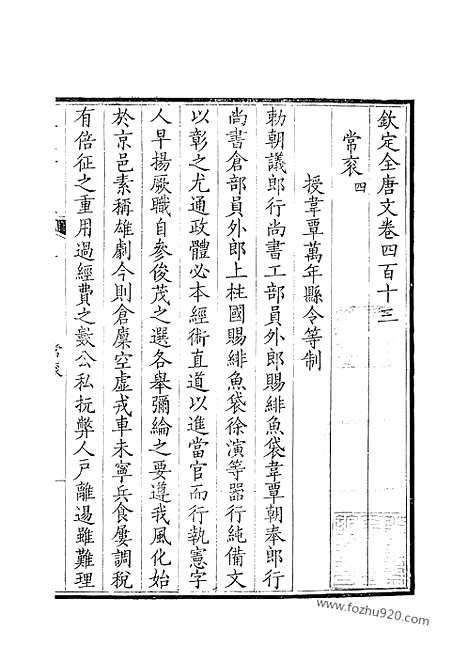 欽定全唐文卷四百十三
常袞四
授韋覃萬年縣令等制
勅朝議郎行尚書工部員外郎賜緋魚袋韋覃朝奉郎行
尚書倉部員外郎上柱國賜緋魚袋徐演等器行純備文
以彰之尤通政體必本經術直道以進當官而行執憲字
人早揚厥職自參俊茂之選各舉彌綸之要遵我風化始
於京邑素稱雄劇今則倉廩空虛戎車未寧兵食屢調稅
有倍征之重用過經費之數公私抏弊人戶離逷雖難理
常袞
www.fozhu920.com